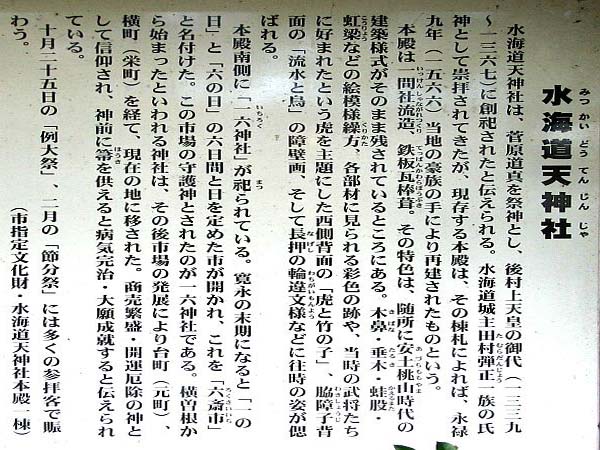 水海道天神社
みつかいどうてんじんじゃ
水海道天神社は、菅原道真を祭神とし、後村上天皇の御代（一三三九
～一三六七）に創祀されたと伝えられる。水海道城主田村弾正一族の氏
神として崇拝されてきたが、現存する本殿は、その棟札によれば、永禄
九年（一五六六）当地の豪族の手により再建されたものという。
本殿は一間社流造、鉄板瓦棒葺。その特色は、随所に安土桃山時代の
建築様式がそのまま残されているところにある。木鼻・垂木・蛙股・
虹梁などの絵模様繰方、各部材に見られる彩色の跡や、当時の武将たち
に好まれたという虎を主題にした西側背面の「虎と竹の子」、脇障子背
面の「流水と鳥」の障壁画、そして長押の輪違文様などに往時の姿が偲
ばれる。
本殿南側に「一六神社」が祀られている。寛永の末期になると「一の
日」と「六の日」の六日間と日を定めた市が開かれ、これを「六斎市」
と名付けた。この市場の守護神とされたのが一六神社である。横曽根か
ら始まったといわれる神社は、その後市場の発展により台町（元町）、
横町（栄町）を経て、現在の地に移された。商売繁盛・開運厄除の神と
して信仰され、神前に箒を供えると病気完治・大願成就すると伝えられ
ている。
十月二十五日の「例大祭」、二月の「節分祭」には多くの参拝客で賑
わう。
（市指定文化財・水海道天神社本殿一棟）